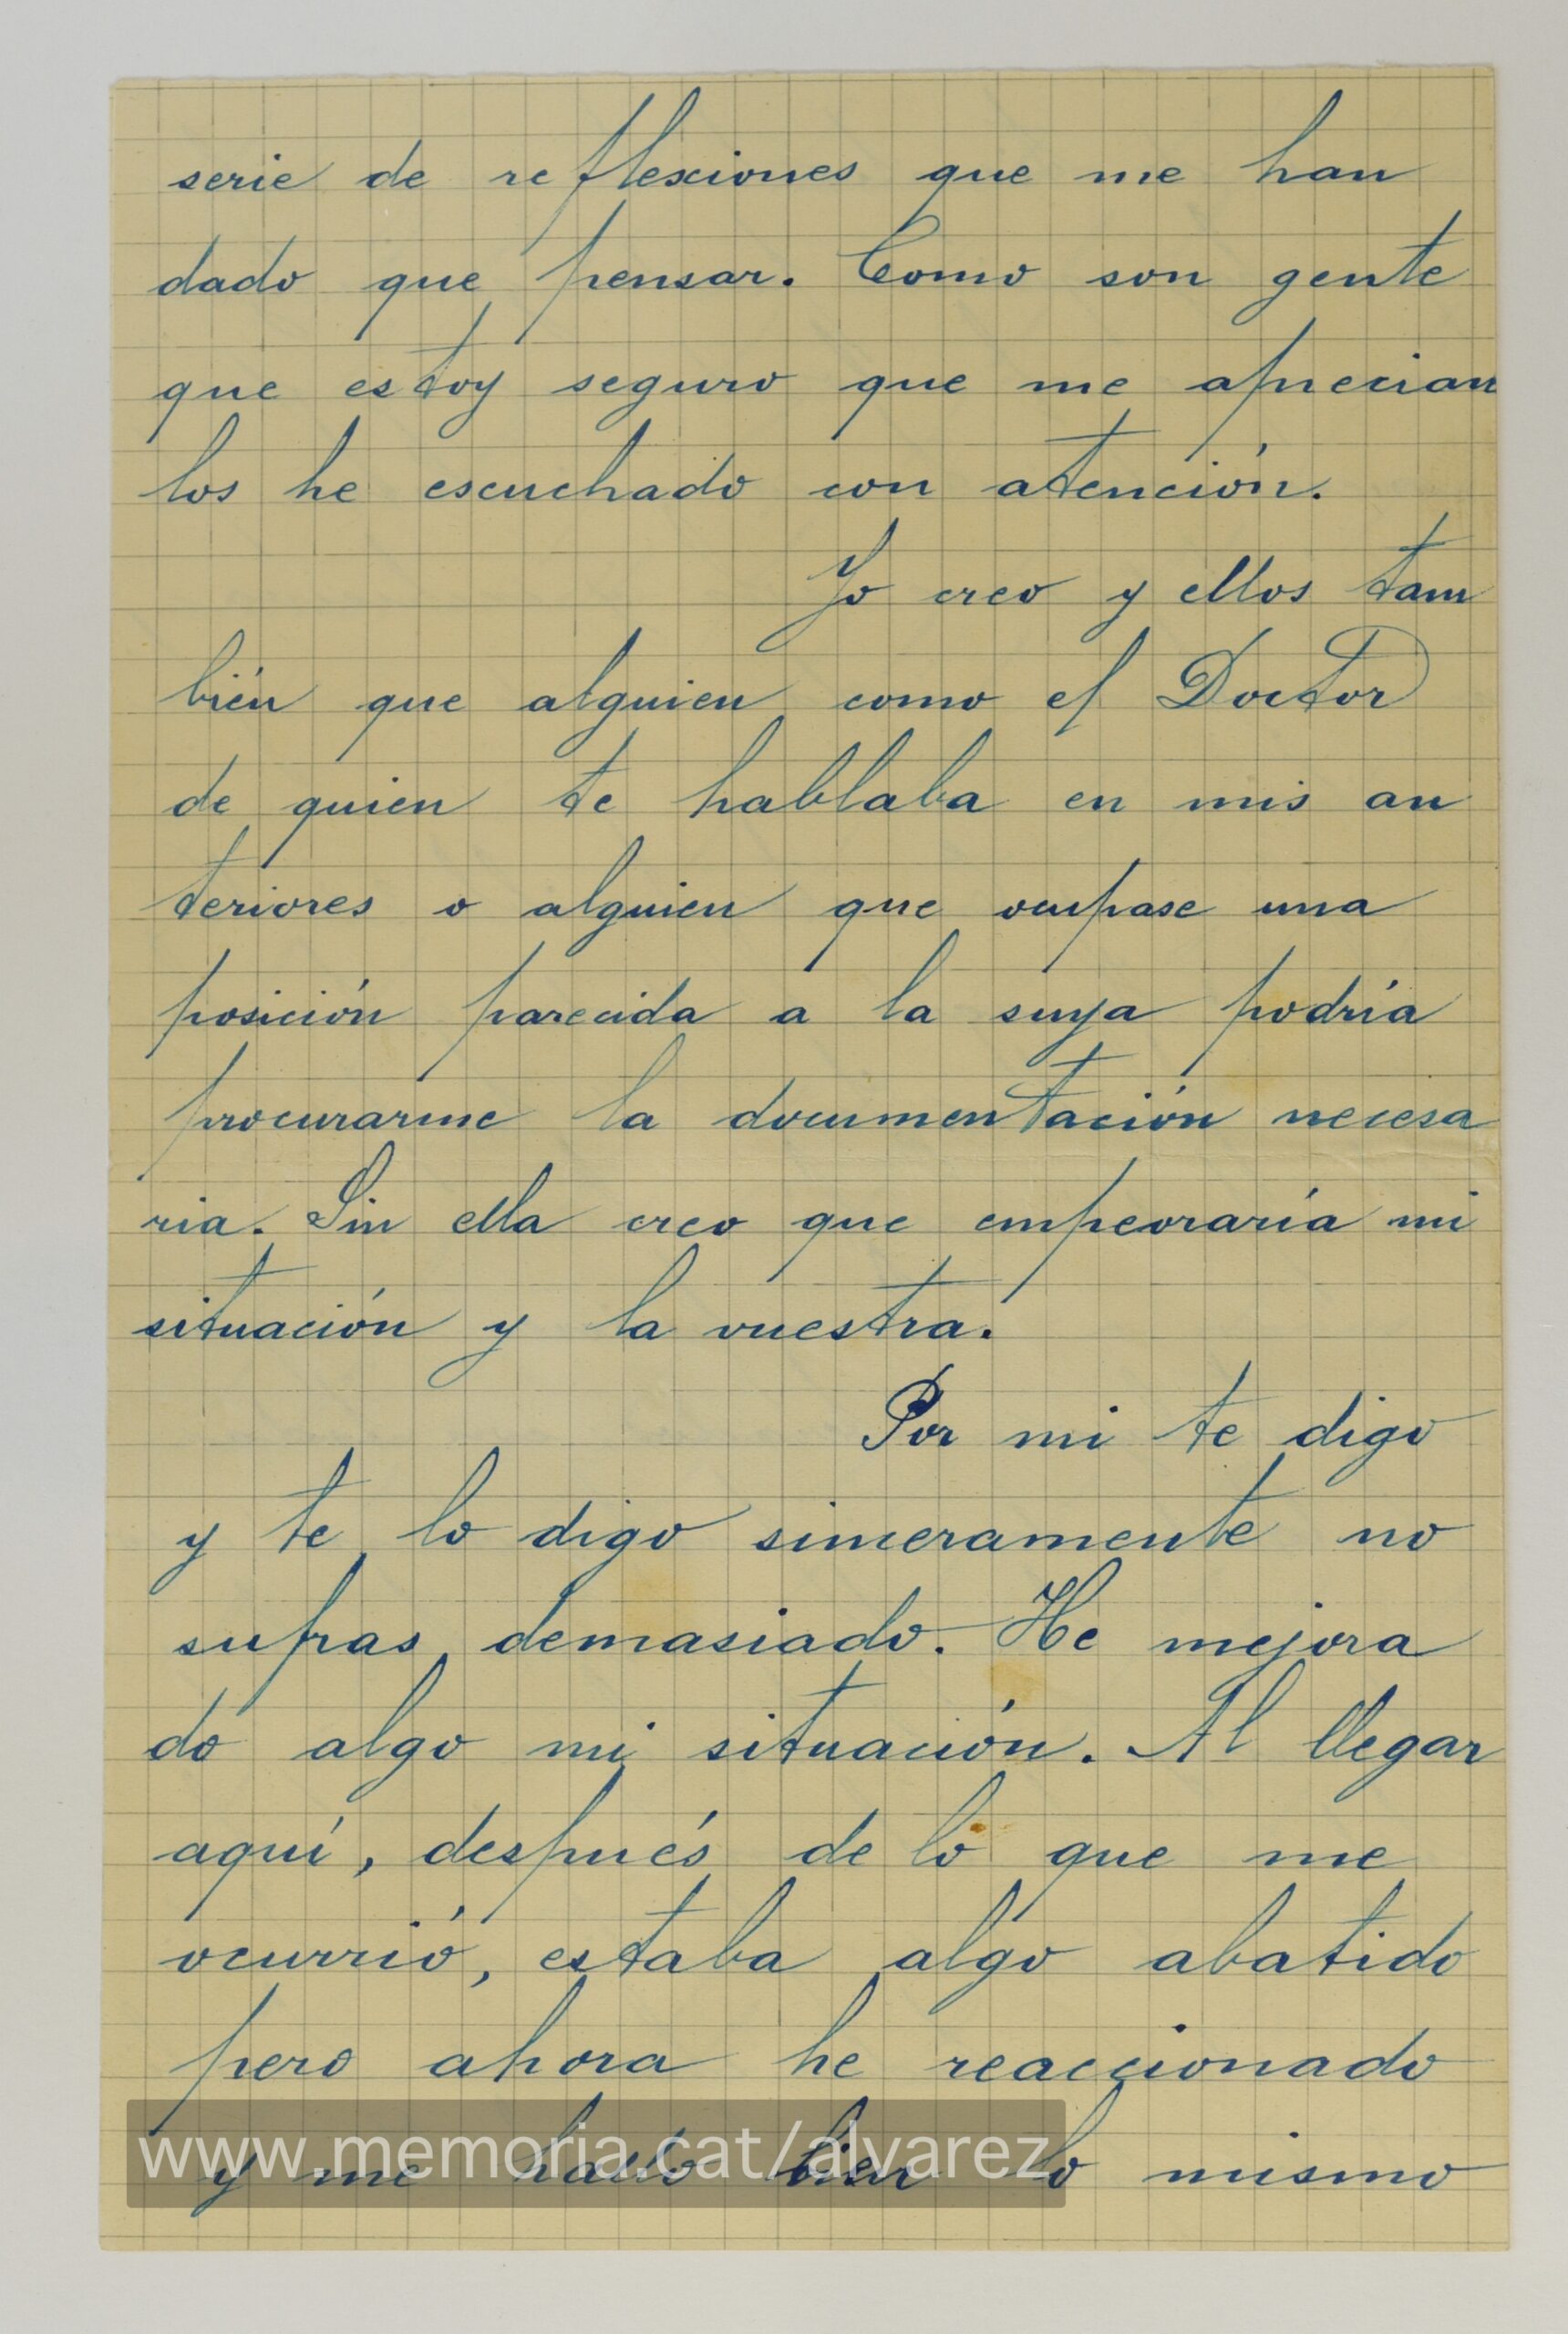 serie de reflexiones que me han
dado que pensar. Como son gente
que estoy seguro que me aprecian
los he escuchado con atención.
Yo creo y ellos tam
bién que alguien como el Doctor
de quien te hablaba en mis an
teriores o alguien que ocupase una
posición parecida a la suya podría
procurarme la documentación necesa
ria. Sin ella creo que empeoraría mi
situación y la vuestra.
Por mi te digo
y te lo digo sinceramente no
sufras demasiado. He mejora
do algo mi situación. Al llegar
aquí, después de lo que me
ocurrió, estaba algo abatido
pero ahora he reaccionado
y me hallo bien lo mismo
www.memoria.cat/alvarez